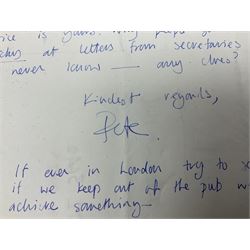 is yours.
at letters from secretaries
never know — any clues?
Kindest regards,
Pete
If ever in London try to
if we keep out of the pub
achieve something—